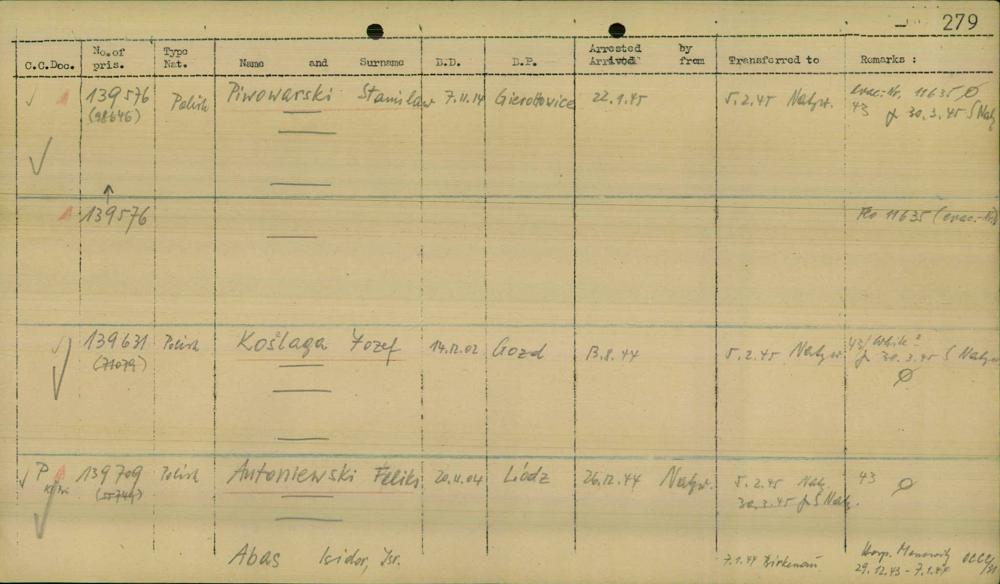 279
C.C.Doc. No. of pris. Type Nat. Name and Surname B.D. B.P. Arrested Arrived by from Transferred to Remarks :
139576 Polish Piwowarski Stanislaw 7.11.14 Gierałtowice 22.1.45 5.2.45 Natzw. evac.-Nr. 11635
(98646) 43 30.3.45 S Natz
139576 Flo 11635 (evac.-Nr)
139631 Polish Koślaga Jozef 14.12.02 Gozd 13.8.44 5.2.45 Natzw 43/
(71079) 30.3.45 S Natzw
P 139709 Polish Antoniewski Feliks 20.11.04 Łódz 26.12.44 Natzw. 5.2.45 Natz 43
30.3.45 S Natz.
Abas Isidor, Isr. 7.1.44 Birkenau Hosp. Monowitz OCC2/
29.12.43 - 7.1.44